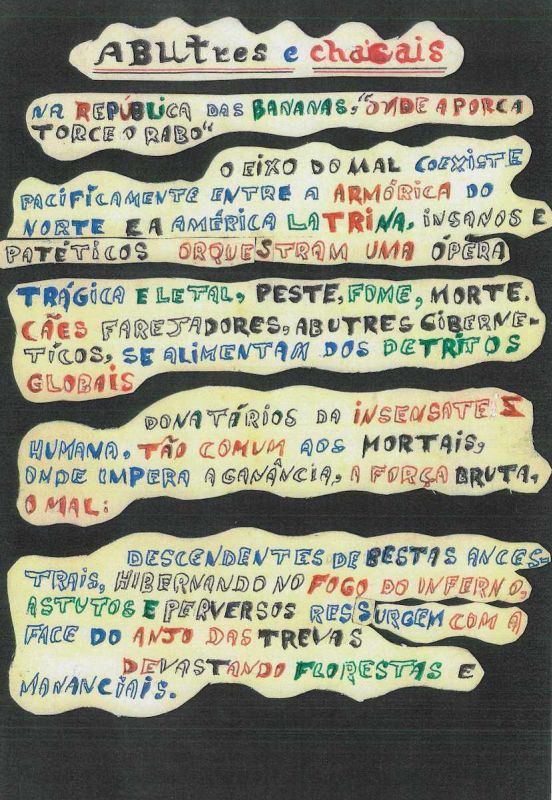 ABUtres e chacais
NA REPÚBLICA DAS BANANAS, "ONDE A PORCA
TORCE O RABO"
O EIXO DO MAL COEXISTE
PACIFICAMENTE ENTRE A ARMÓRICA DO
NORTE E A AMÉRICA LATRINA, INSANOS E
PATÉTICOS ORQUESTRAM UMA ÓPERA
TRÁGICA E LETAL, PESTE, FOME, MORTE.
CÃES FAREJADORES, ABUTRES CIBERNE-
TICOS, SE ALIMENTAM DOS DETRITOS
GLOBAIS
DONATÁRIOS DA INSENSATEZ
HUMANA, TÃO COMUM AOS MORTAIS,
ONDE IMPERA A GANÂNCIA, A FORÇA BRUTA,
O MAL:
DESCENDENTES DE BESTAS ANCES-
TRAIS, HIBERNANDO NO FOGO DO INFERNO,
ASTUTOS E PERVERSOS RESSURGEM COM A
FACE DO ANJO DAS TREVAS
DEVASTANDO FLORESTAS E
MANANCIAIS.